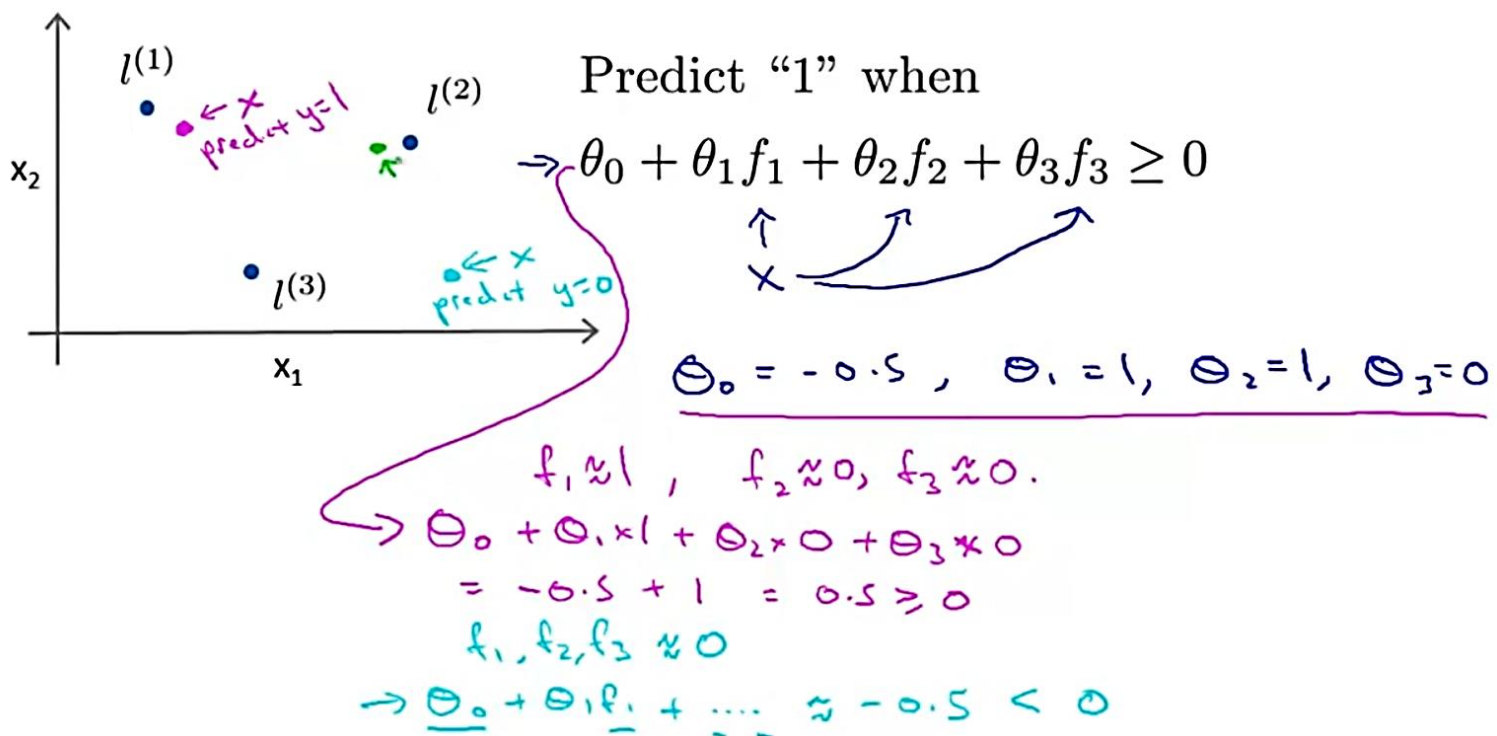 l^{(1)}
← x
predict y=1
l^{(2)}
x₂
l^{(3)}
← x
predict y=0
x₁
Predict “1” when
→ θ₀ + θ₁f₁ + θ₂f₂ + θ₃f₃ ≥ 0
x
θ₀ = -0.5, θ₁ = 1, θ₂ = 1, θ₃ = 0
f₁ ≈ 1, f₂ ≈ 0, f₃ ≈ 0.
→ θ₀ + θ₁×1 + θ₂×0 + θ₃×0
= -0.5 + 1 = 0.5 ≥ 0
f₁, f₂, f₃ ≈ 0
→ θ₀ + θ₁f₁ + .... ≈ -0.5 < 0